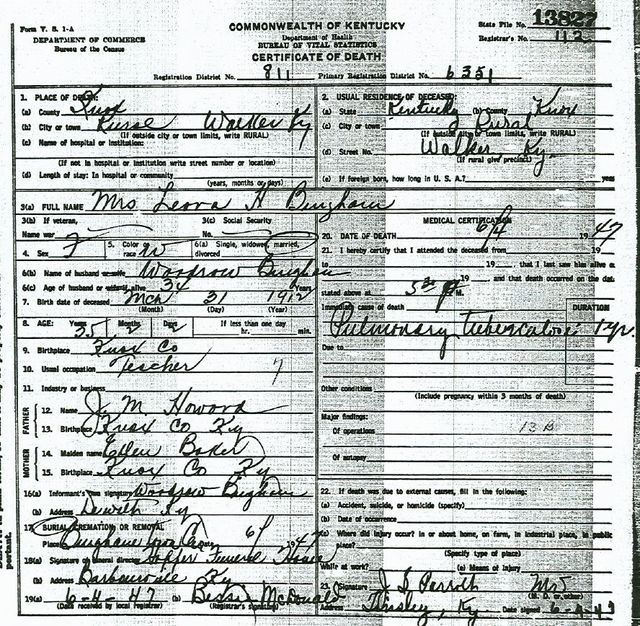 Form V. S. 1-A
DEPARTMENT OF COMMERCE
Bureau of the Census
COMMONWEALTH OF KENTUCKY
Department of Health
BUREAU OF VITAL STATISTICS
CERTIFICATE OF DEATH
State File No. 13827
Registrar's No. 112
Registration District No. 811 Primary Registration District No. 6351
1. PLACE OF DEATH:
(a) County Knox
(b) City or town Rural Walker Ky
(If outside city or town limits, write RURAL)
(c) Name of hospital or institution:
(If not in hospital or institution write street number or location)
(d) Length of stay: In hospital or community
(years, months or days)
2. USUAL RESIDENCE OF DECEASED:
(a) State Kentucky (b) County Knox
(c) City or town Rural
(If outside city or town limits, write RURAL)
(d) Street No. Walker Ky.
(If rural give precinct)
(e) If foreign born, how long in U. S. A.? years
3(a) FULL NAME Mrs Leora H Bingham
3(b) If veteran,
Name war
3(c) Social Security
No.
4. Sex F 5. Color race W 6(a) Single, widowed, married, divorced
6(b) Name of husband or wife Woodrow Bingham
6(c) Age of husband or wife if alive 34 Years
7. Birth date of deceased Mch 31 1912
(Month) (Day) (Year)
8. AGE: Years 35 Months 2 Days If less than one day
hr. min.
9. Birthplace Knox Co
10. Usual occupation Teacher
11. Industry or business
FATHER
12. Name J. M. Howard
13. Birthplace Knox Co Ky
MOTHER
14. Maiden name Ellen Baker
15. Birthplace Knox Co Ky
16(a) Informant's own signature Woodrow Bingham
(b) Address Dewitt Ky
17. BURIAL, CREMATION OR REMOVAL
Place Bingham 6/ 1947
18(a) Signature of funeral director Hopper Funeral Home
(b) Address Barbourville Ky
19(a) 6-4-47 (b) Bessie McDonald
(Date received by local registrar) (Registrar's signature)
MEDICAL CERTIFICATION
20. DATE OF DEATH 6/4 1947
21. I hereby certify that I attended the deceased from 19
to 19 that I last saw him alive
19 and that death occurred on the date
stated above at 5:30 P M.
Immediate cause of death
DURATION
Pulmonary Tuberculosis 1 yr.
Due to
Other conditions
(Include pregnancy within 3 months of death)
Major findings:
Of operations
13 B
Of autopsy
22. If death was due to external causes, fill in the following:
(a) Accident, suicide, or homicide (specify)
(b) Date of occurrence
(c) Where did injury occur? in or about home, on farm, in industrial place, in public
place?
(Specify type of place)
While at work? (e) Means of injury
23. Signature J S Parrott MD
(M. D. or other)
Address Tinsley, Ky Date signed 6-4-47